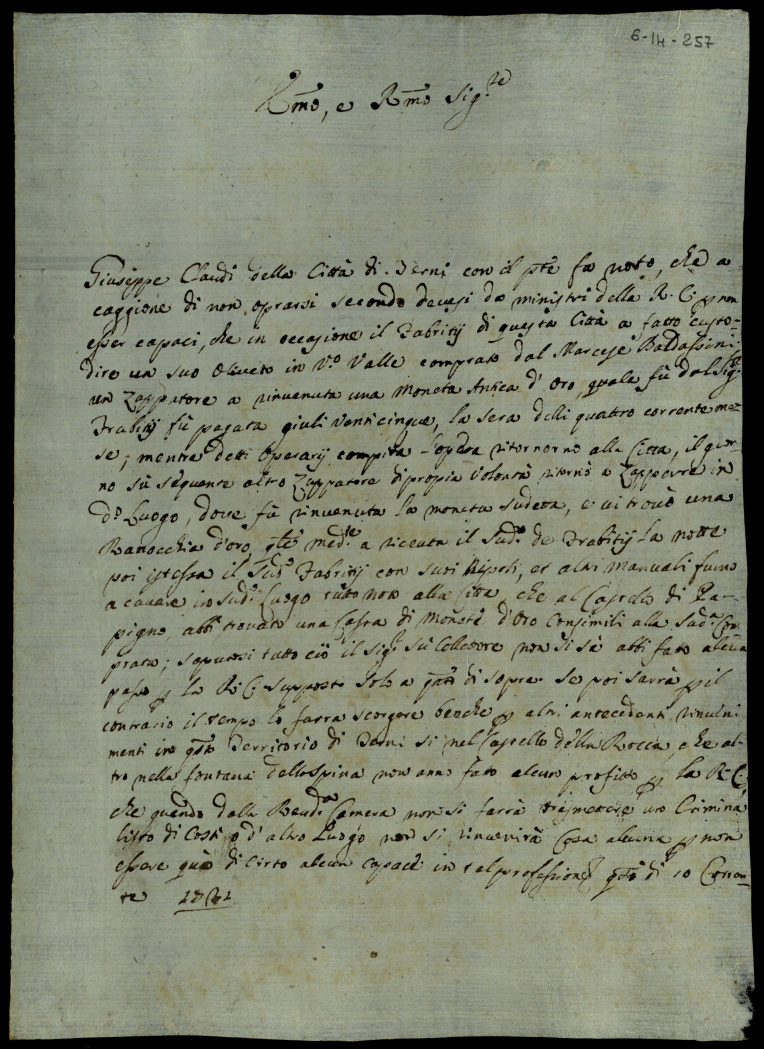 6-14-257
Emo, e Rmo Sig.re
Giuseppe Claudi della Città di Terni con il pte fa noto, che a
caggione di non oprarsi secondo devesi da ministri della R. C. p non
esser capaci, che in occasione il Fabritij di questa Città a fatto custo=
dire un suo Oliveto in Vo. Valle comprato dal Marcese Baldassini
un Zappatore a rinvenuta una Moneta Antica d' Oro, quale fù dal Sig.re
Frabitij fù pagata giuli venticinque, la sera delli quattro corrente me=
se; mentre detti Operarij compita l'opera ritornorno alla Citta, il gior=
no sù sequente altro Zappatore di propia volontà ritornò a Zappare in
do. Luogo, dove fù rinvenuta la moneta sudetta, e vi trovò una
Ranocchia d'oro, qle med.te a riceuta il Sud.o de Frabitij La notte
poi istessa il Sud.o Fabritij con suoi Nipoti, et altri manuali furno
a cavare in sud.o Luogo tutto noto alla Citta, che al Castello di Pa=
pigno, abbi trovato una Cassa di Monete d'Oro Consimili alla sud.a Com
prata; saputosi tutto ciò il sig.re Sú Collettore non si sà abbi fatto alcun
passo p la R. C. supposto solo a qto di sopra. Se poi sarrà p il
contrario il tempo lo farra scorgere benche p altri antecedenti rinveni
menti in qto Territorio di Terni si nel Castello della Rocca, che al=
tro nella fontana dellospina non anno fato alcun profitto p la R. C.
che quando dalla Rend.a Camera non si farrà trasmettere un Crimina
listo di Costi, o d' altro Luogo non si rinvenirà Cosa alcuna p non
essere quà di Cirto alcun capace in tal professione qto dì 10 Corren=
te